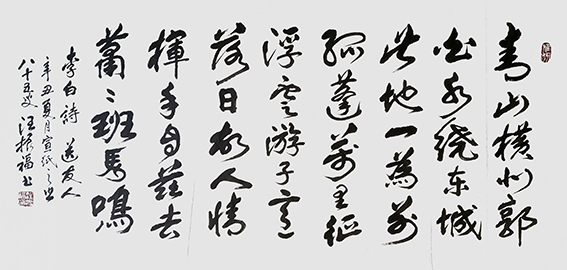 青山横北郭
白水绕东城
此地一為别
孤蓬萬里征
浮雲游子意
落日故人情
揮手自兹去
蕭〻班馬鳴
李白詩 送友人
辛丑夏月宣纸之乡
八十五叟汪振福书